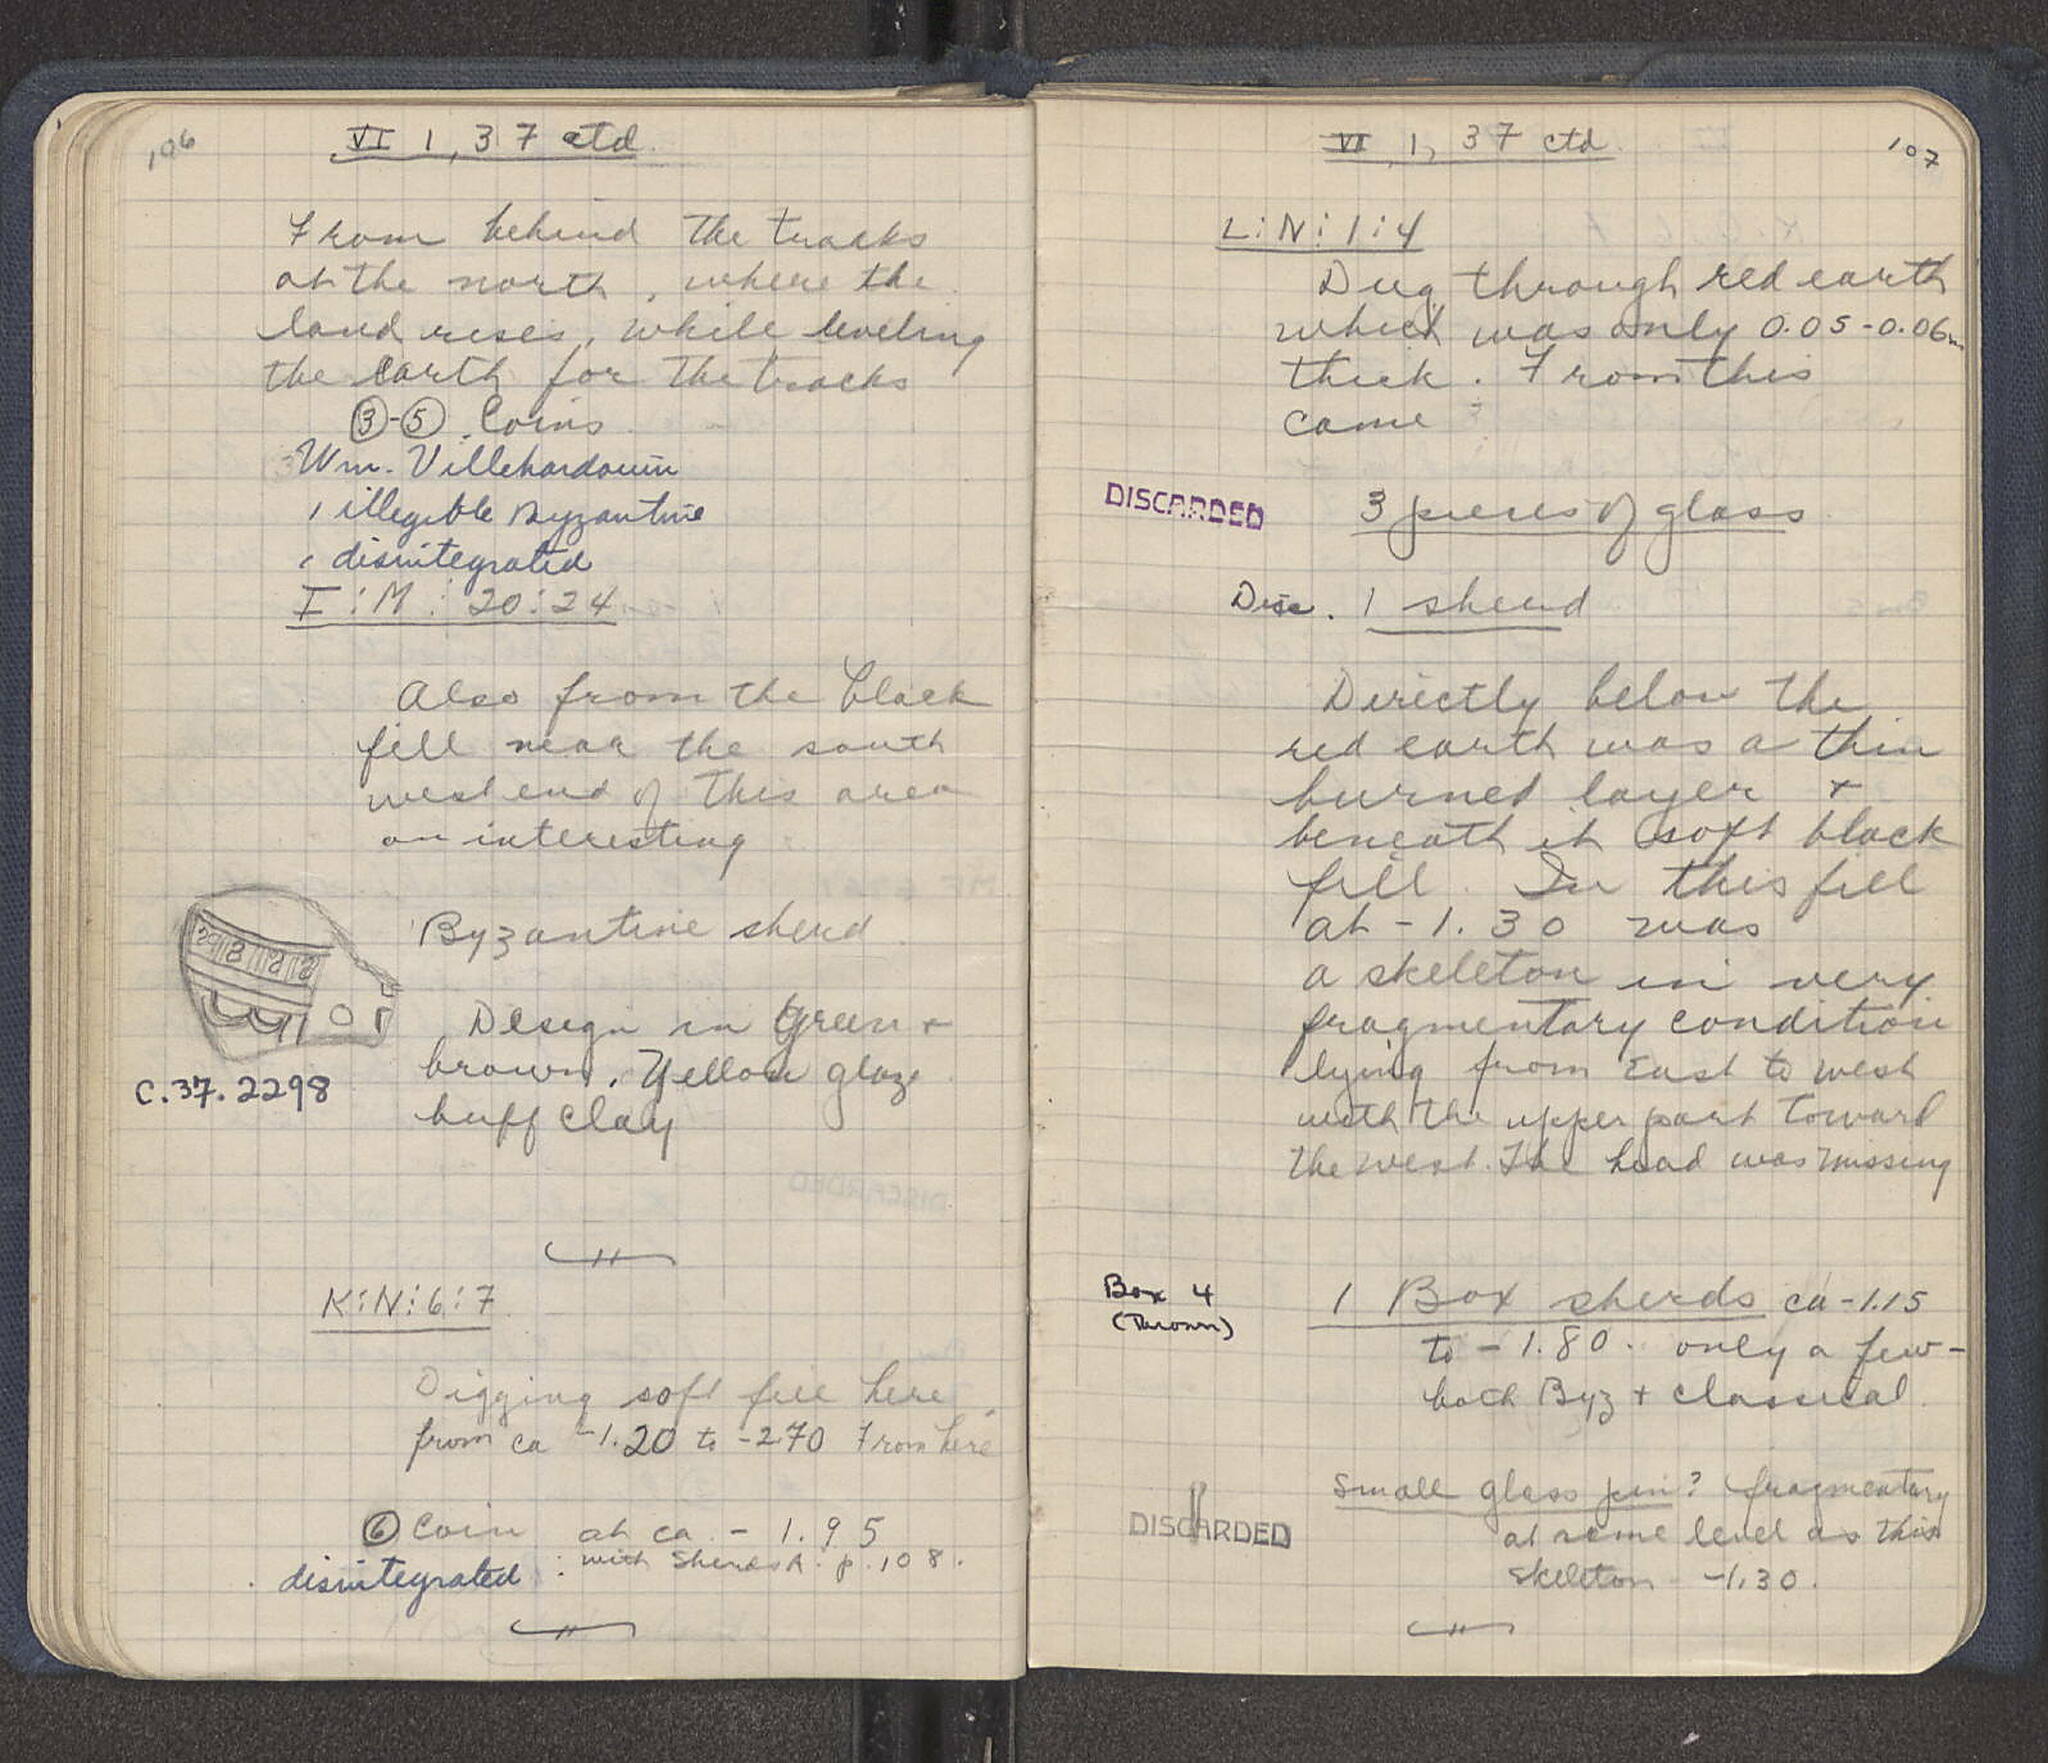 106
VI 1, 37 ctd.
From behind the tracks
at the north, where the
land rises, while leveling
the earth for the tracks
③-⑤ Coins
Wm. Villehardouin
1 illegible Byzantine
1 disintegrated
I:M:20:24
Also from the black
fill near the south
west end of this area
an interesting
Byzantine sherd
Design in Green +
brown. Yellow glaze
buff clay
C.37.2298
K:N:6:7
Digging soft fill here
from ca -1.20 to -2.70 From here
⑥ Coin at ca - 1.95
disintegrated : with Sherds A. p. 108.
VI, 1, 37 ctd.
107
L:N:1:4
Dug through red earth
which was only 0.05-0.06m
thick. From this
came
DISCARDED 3 pieces of glass
Disc. 1 sherd
Directly below the
red earth was a thin
burned layer +
beneath it soft black
fill. In this fill
at -1.30 was
a skeleton in very
fragmentary condition
lying from East to west
with the upper part toward
the west. The head was missing
Box 4 1 Box sherds ca -1.15
(Thrown) to -1.80. only a few-
both Byz + Classical
Small glass pin? fragmentary
DISCARDED at same level as this
skeleton -1.30.